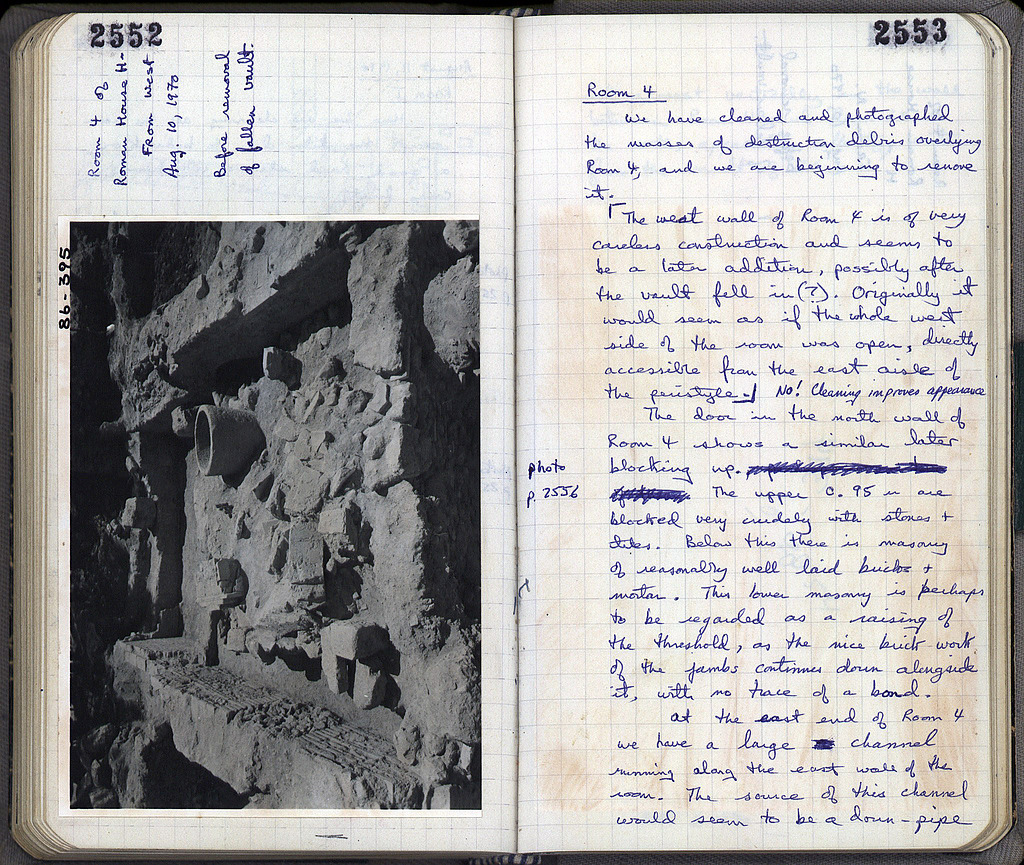 2552
Room 4 of
Roman House H-
From west
Aug. 10, 1970
Before removal
of fallen vault.
86-395
2553
Room 4
We have cleaned and photographed
the masses of destruction debris overlying
Room 4, and we are beginning to remove
it.
⌈The west wall of Room 4 is of very
careless construction and seems to
be a later addition, possibly after
the vault fell in (?). Originally it
would seem as if the whole west
side of the room was open, directly
accessible from the east aisle of
the peristyle.⌋ No! Cleaning improves appearance
The door in the north wall of
Room 4 shows a similar later
photo
p. 2556
blocking up.
The upper c. .95 m are
blocked very crudely with stones +
tiles. Below this there is masonry
of reasonably well laid bricks +
mortar. This lower masonry is perhaps
to be regarded as a raising of
the threshold, as the nice brick work
of the jambs continues down alongside
it, with no trace of a bond.
At the east end of Room 4
we have a large channel
running along the east wall of the
room. The source of this channel
would seem to be a down-pipe